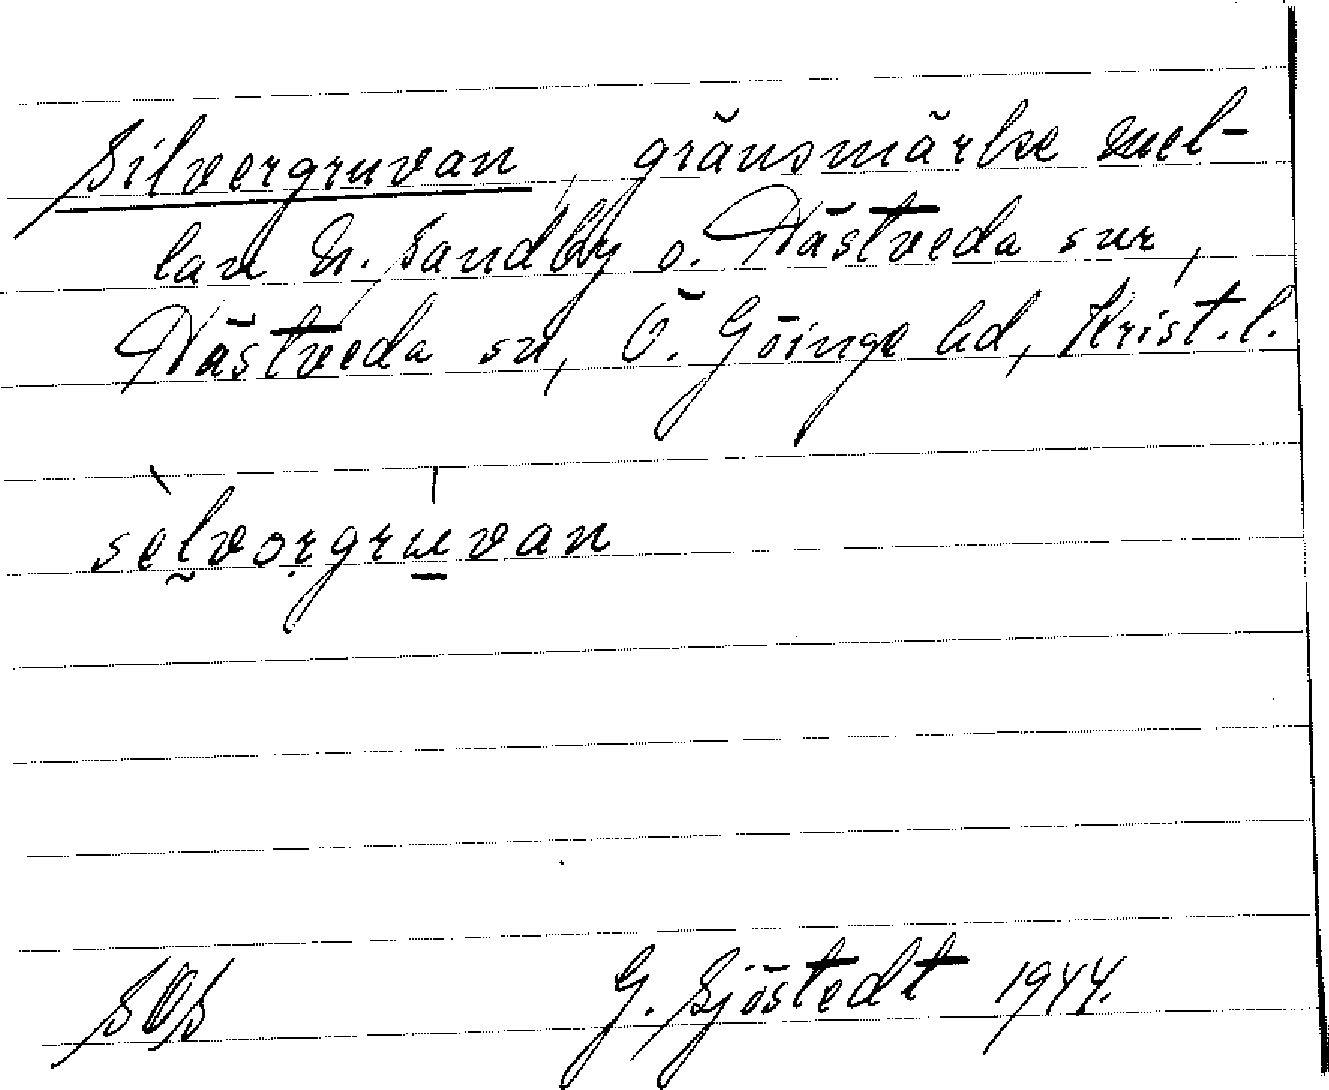 Silvergruvan, gränsmärke mel-
lan N. Sandby o. Nästveda snr,
Nästveda sn, Ö. Göinge hd, Krist. l.
sèlvorgruvan
SOS G. Sjöstedt 1944.